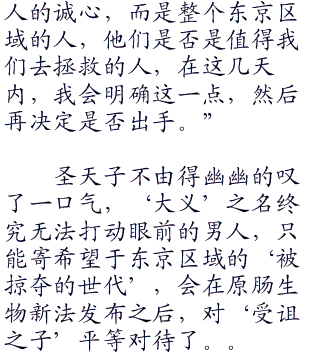 人的诚心，而是整个东京区
域的人，他们是否是值得我
们去拯救的人，在这几天
内，我会明确这一点，然后
再决定是否出手。”
圣天子不由得幽幽的叹
了一口气，‘大义’之名终
究无法打动眼前的男人，只
能寄希望于东京区域的‘被
掠夺的世代’，会在原肠生
物新法发布之后，对‘受诅
之子’平等对待了。。